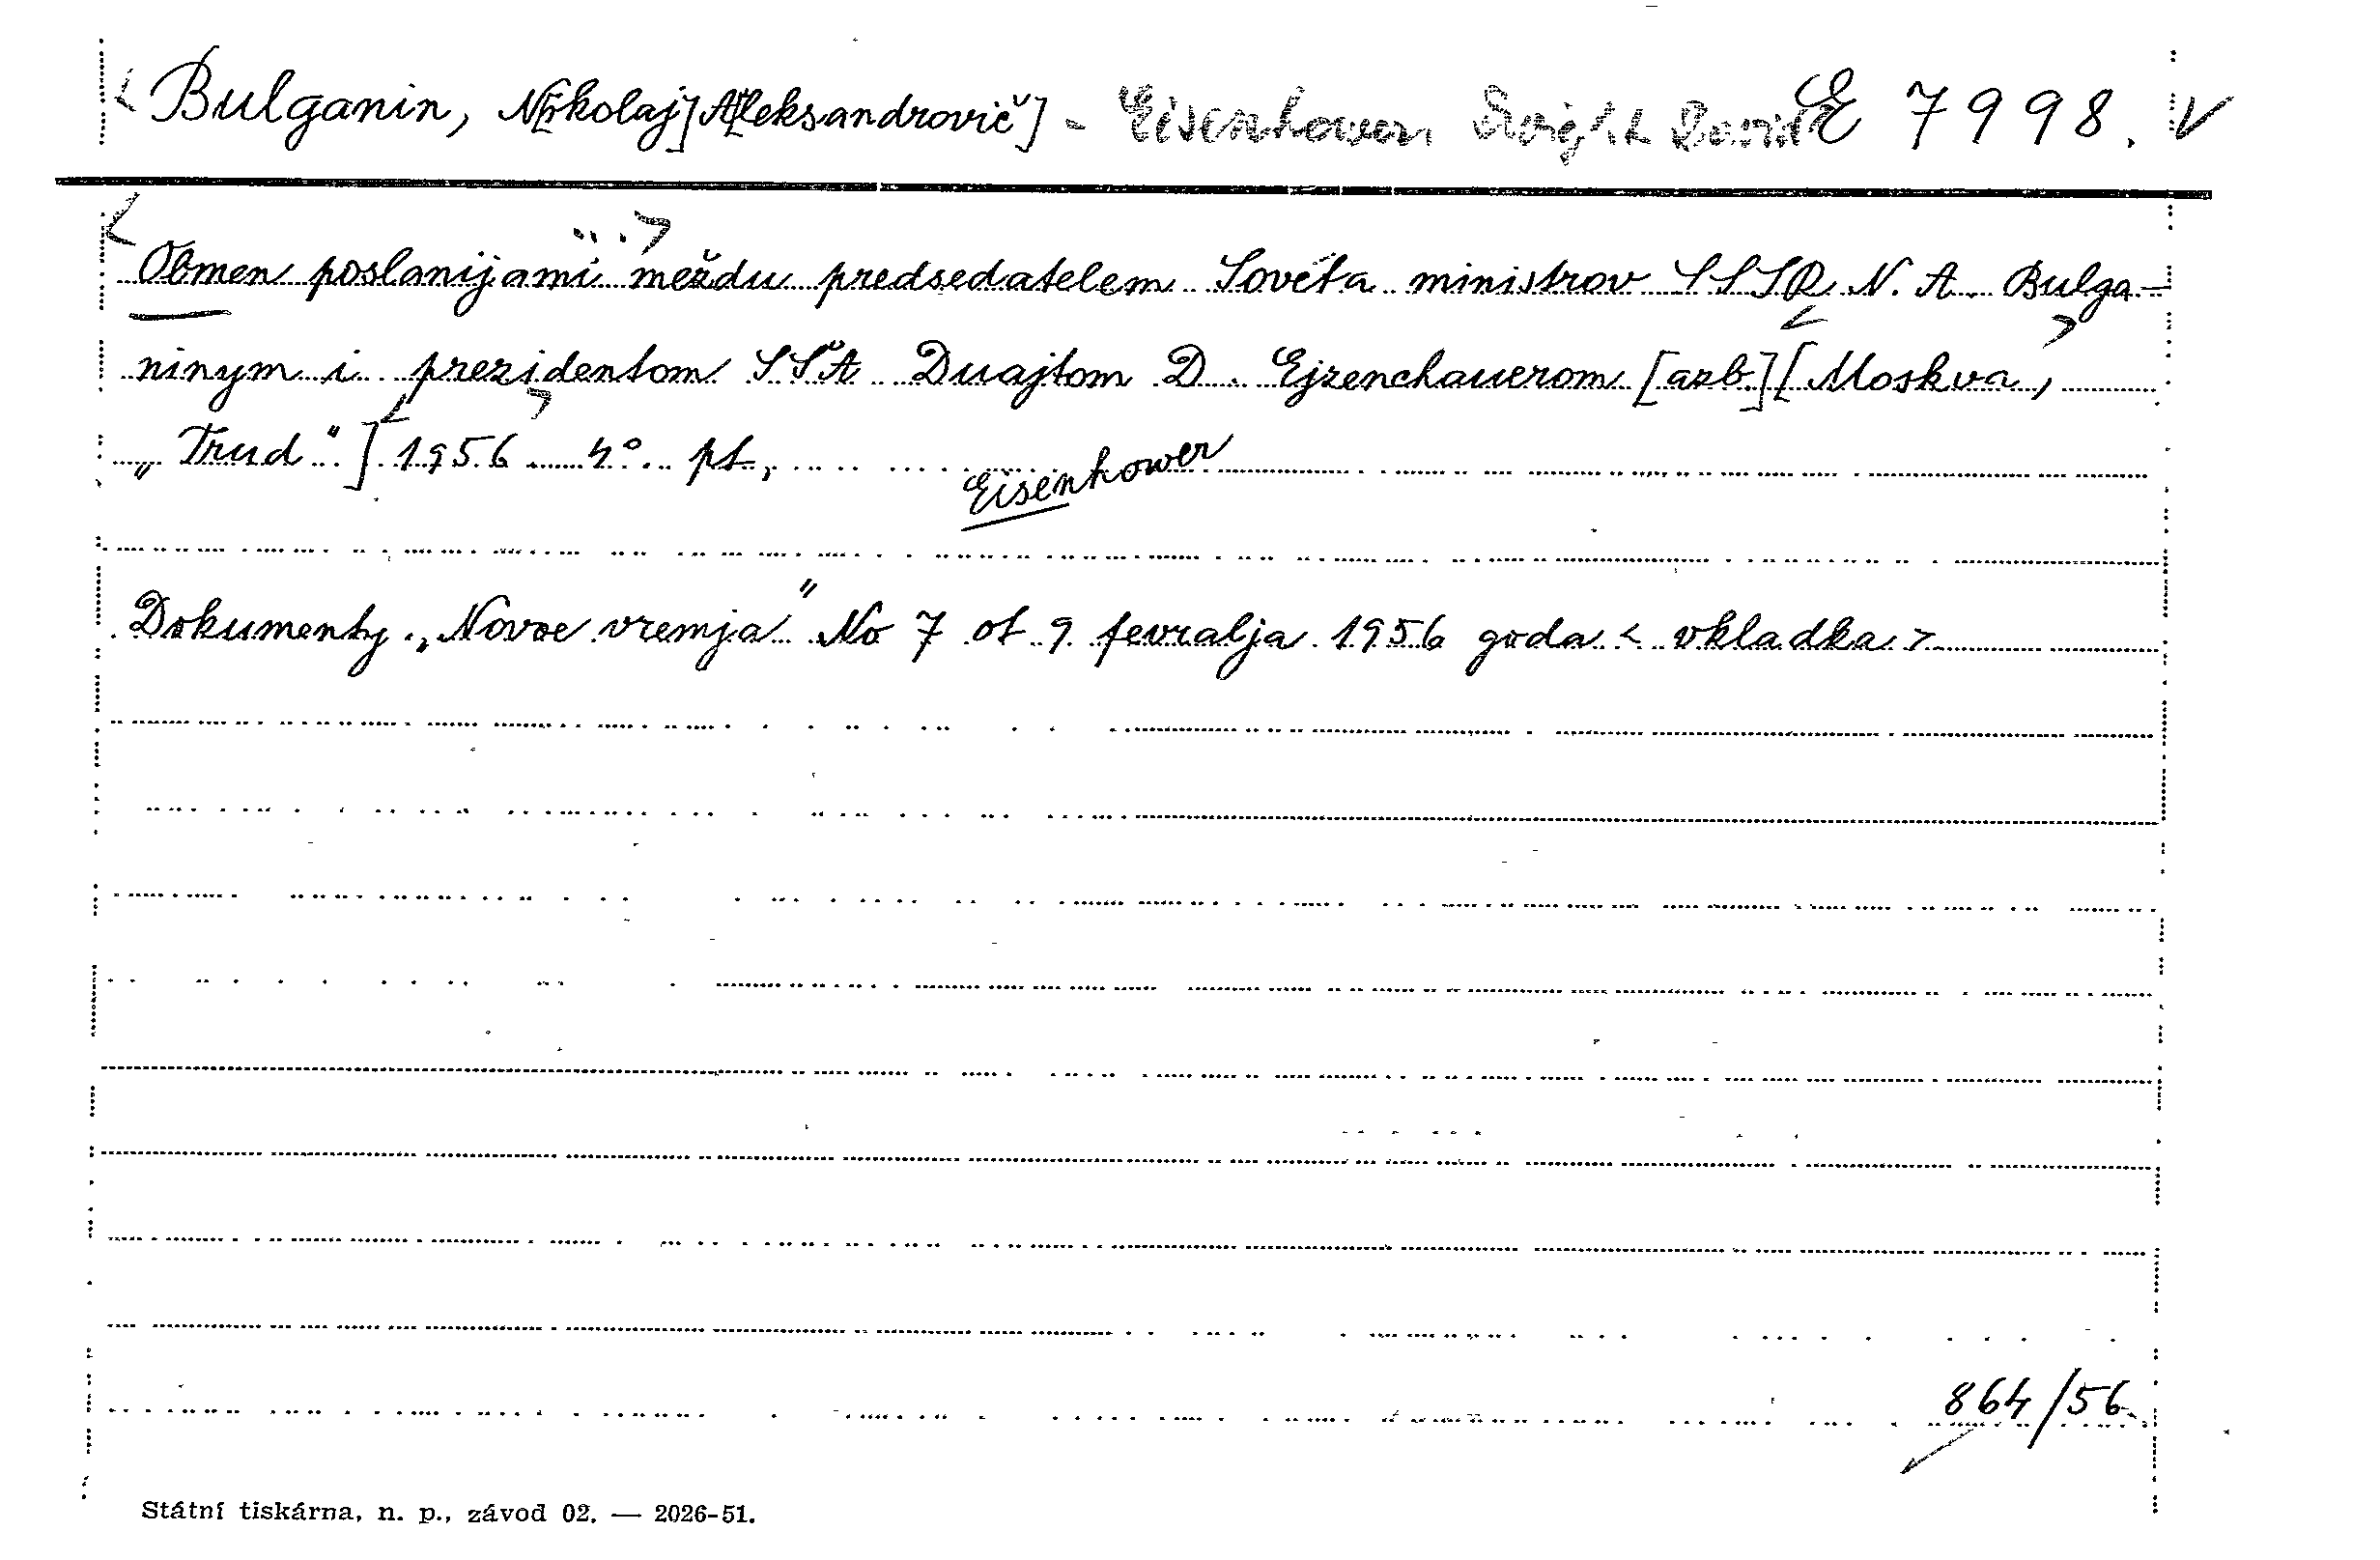 < Bulganin, N[ikolaj] A[leksandrovič] - Eisenhower, Dwight David E 7998. V
< ... >
Obmen poslanijami meždu predsedatelem Sověta ministrov SSSR N. A. Bulga-
ninym i prezidentom SŠA Duajtom D. Ejzenchauerom [azb.] [Moskva,
„Trud"] 1956 4°. pt,
Eisenhower
Dokumenty „Novoe vremja" No 7 ot 9 fevralja 1956 goda < vkladka >
864/56
Státní tiskárna, n. p., závod 02. — 2026-51.